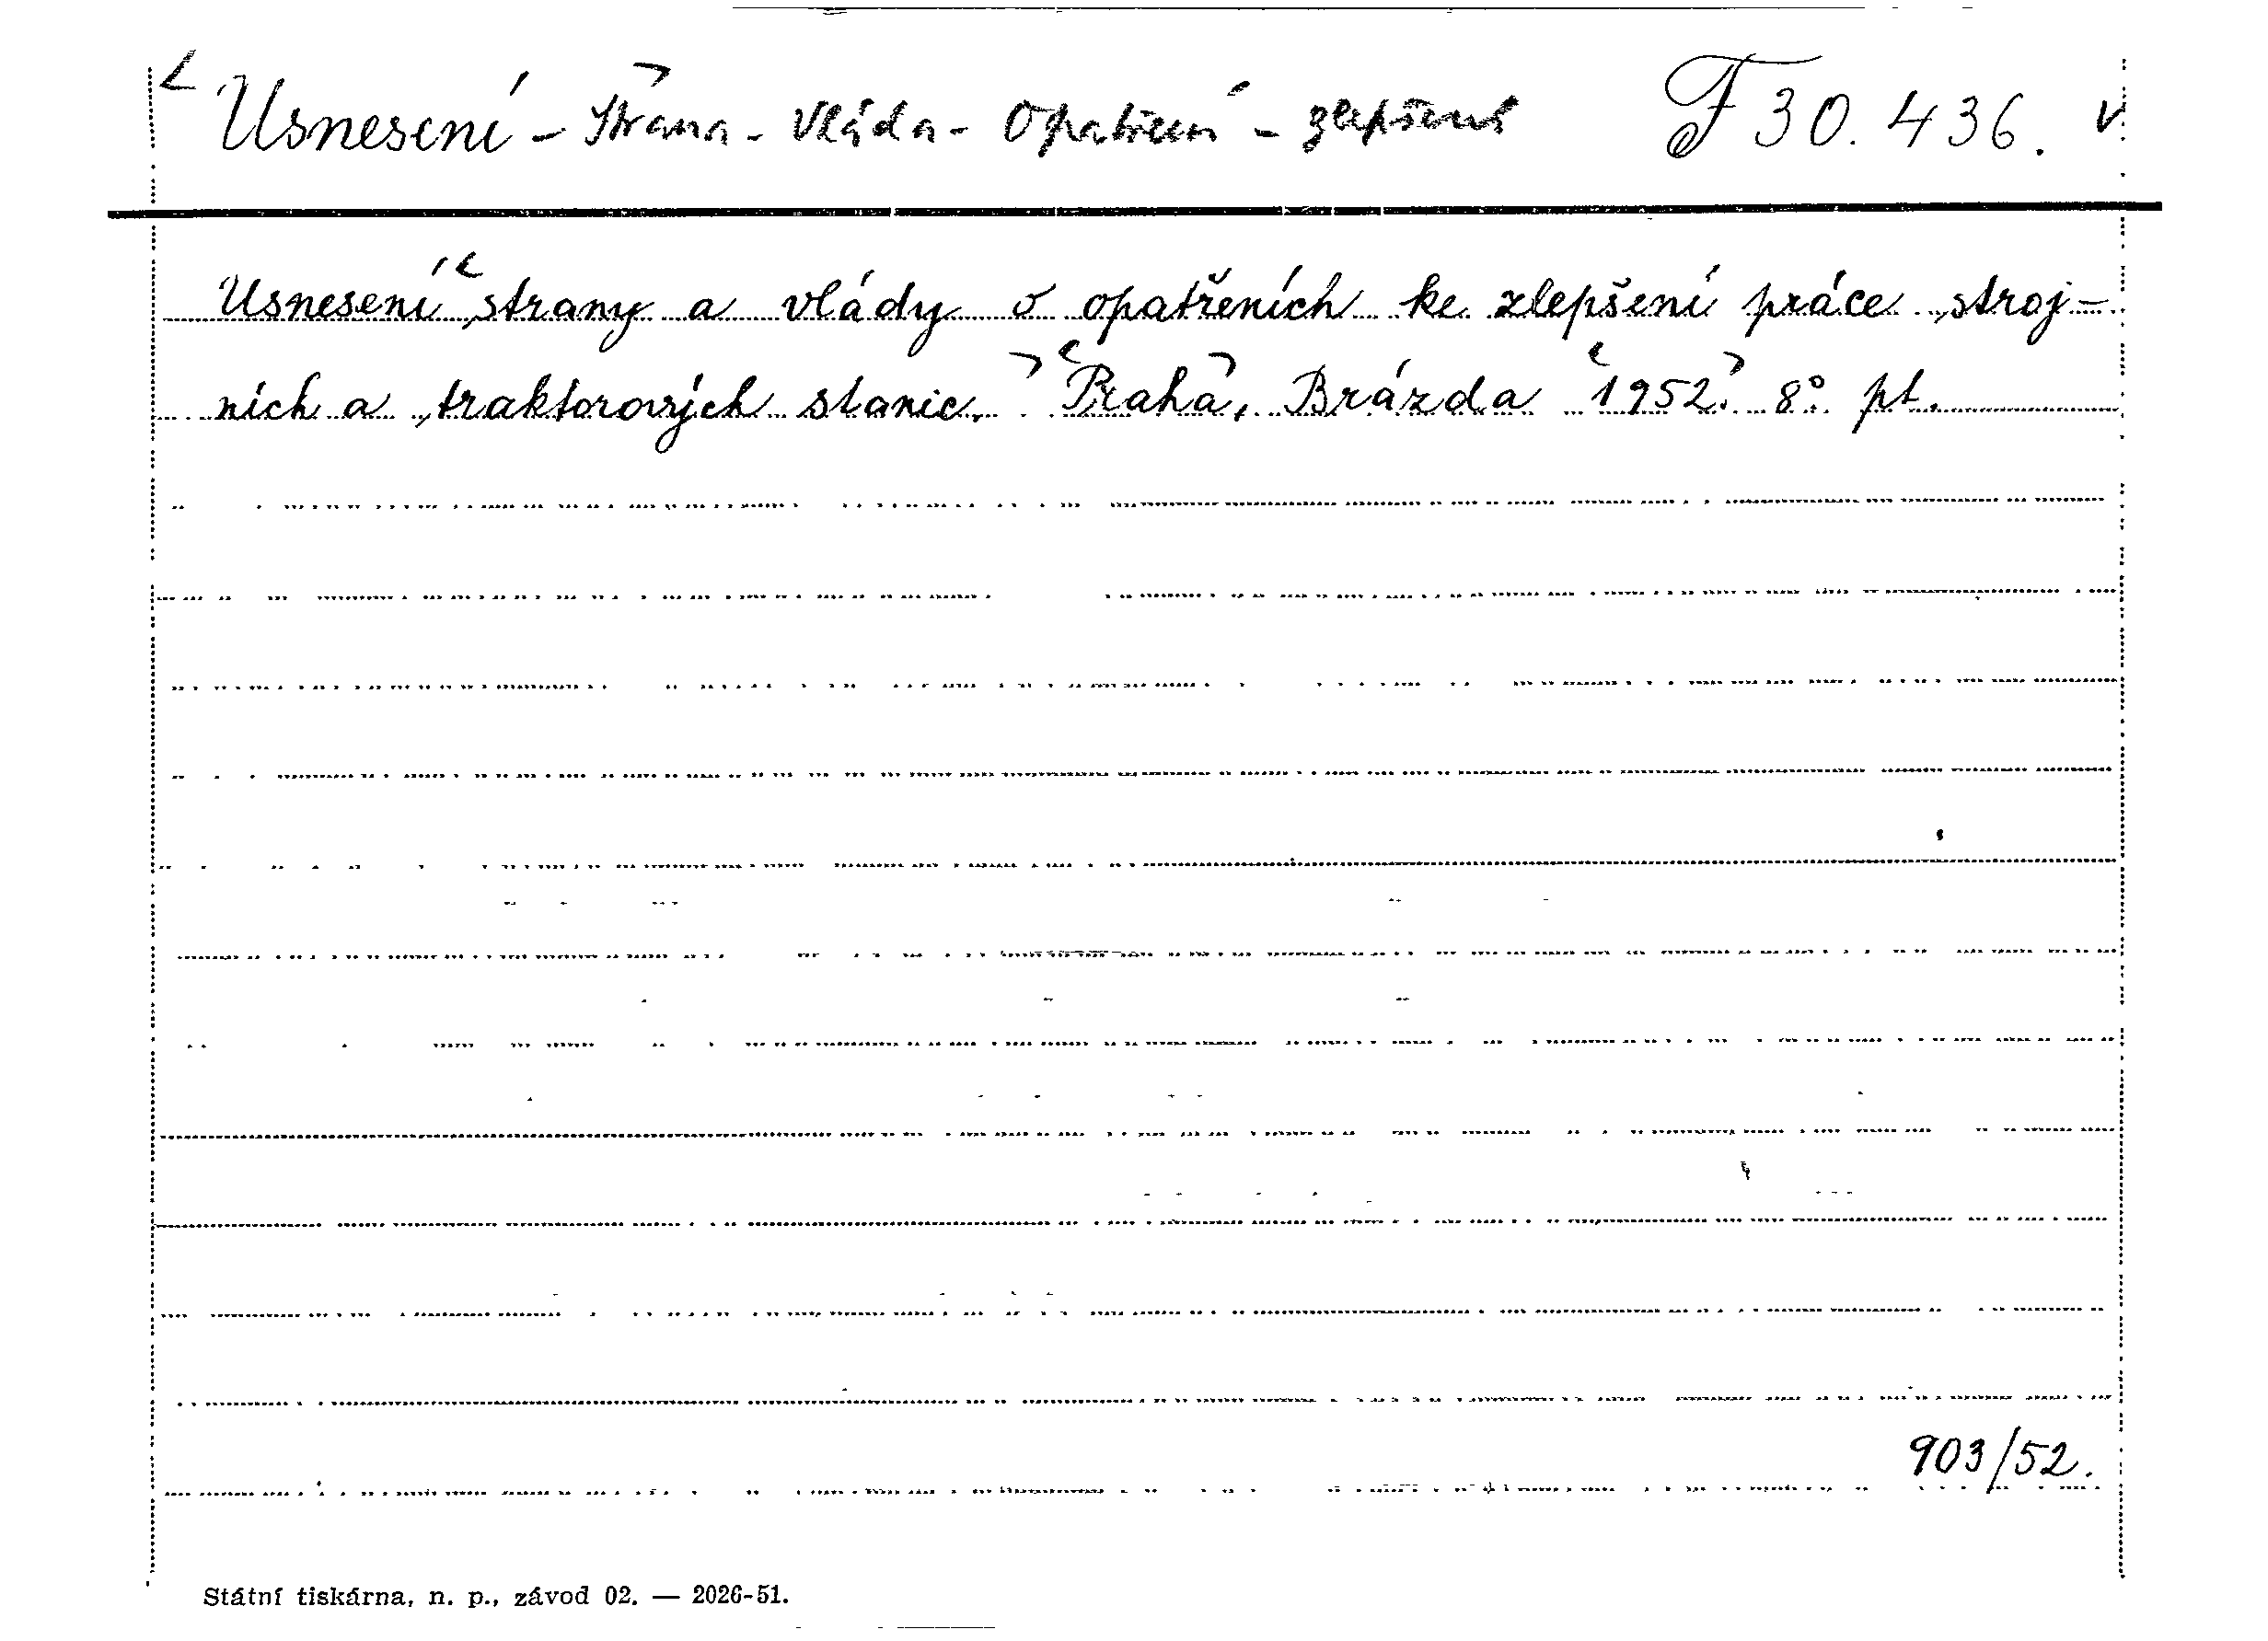 Usnesení - Strana - Vláda - Opatření - zlepšení F 30.436. v
Usnesení strany a vlády o opatřeních ke zlepšení práce stroj-
ních a traktorových stanic. Praha, Brázda 1952. 8° pt.
903/52.
Státní tiskárna, n. p., závod 02. — 2026-51.